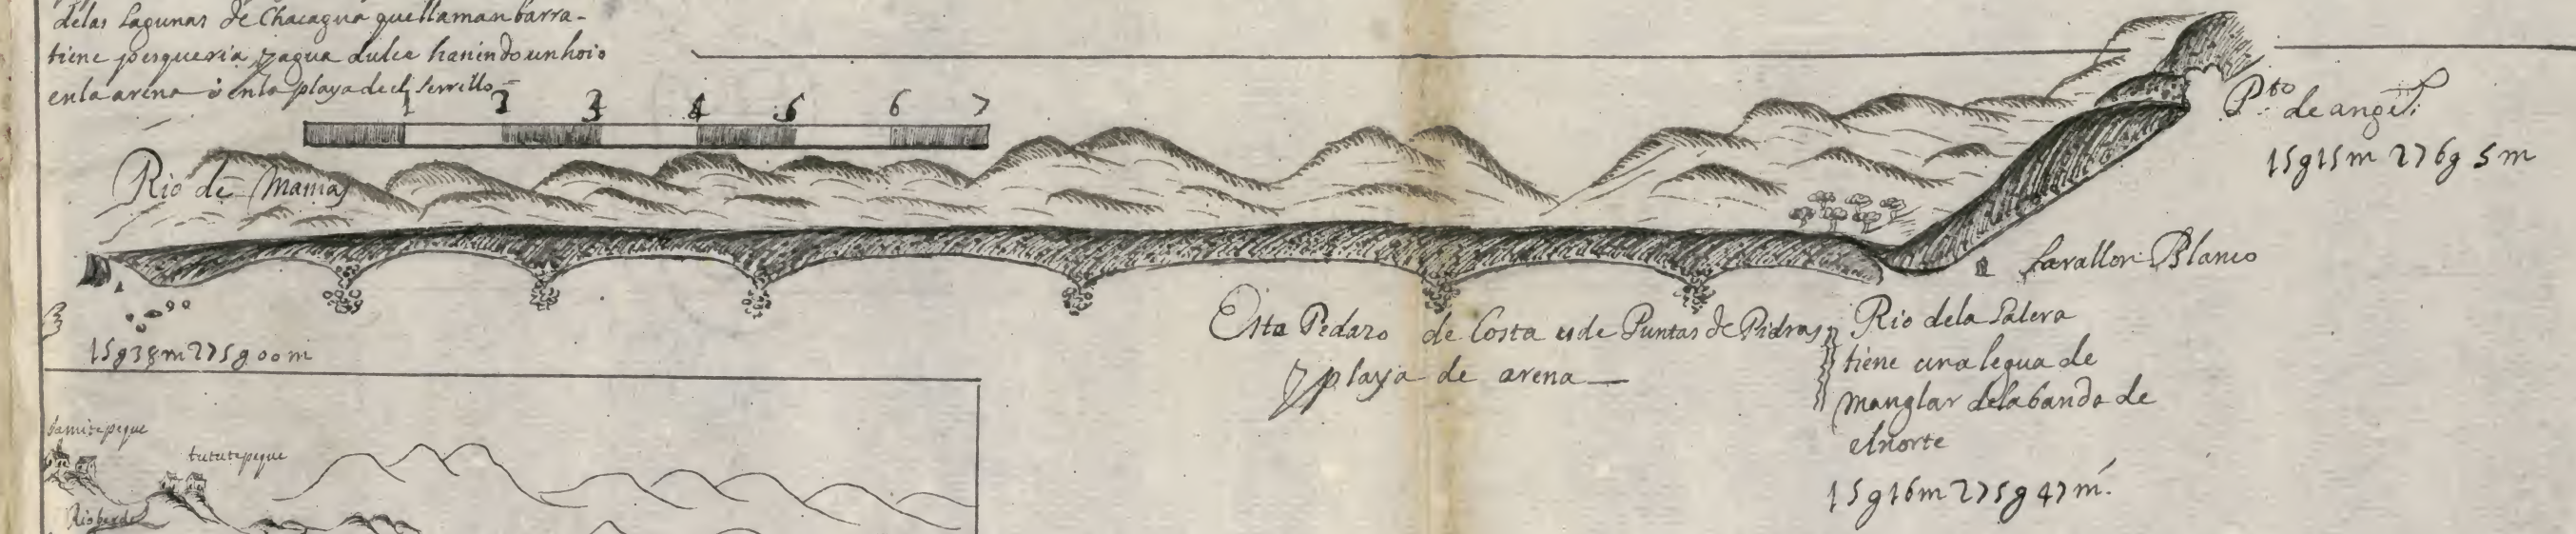 delas Lagunas de Chacagua quellamanbarra-
tiene pesqueria, y agua dulce haniendo unhoio
enla arena o enla playa de el serrillo =
1 2 3 4 5 6 7
Rio de Manias
Pto de angel
15g15m 276g 5m
farallon Blanco
15g38m 275g00m
Esta Pedazo de Costa es de Puntas de Pidras
y playa de arena —
Rio dela Galera
tiene una legua de
manglar dela banda de
el norte
15g16m 275g47m.
tututepeque
Rio berde